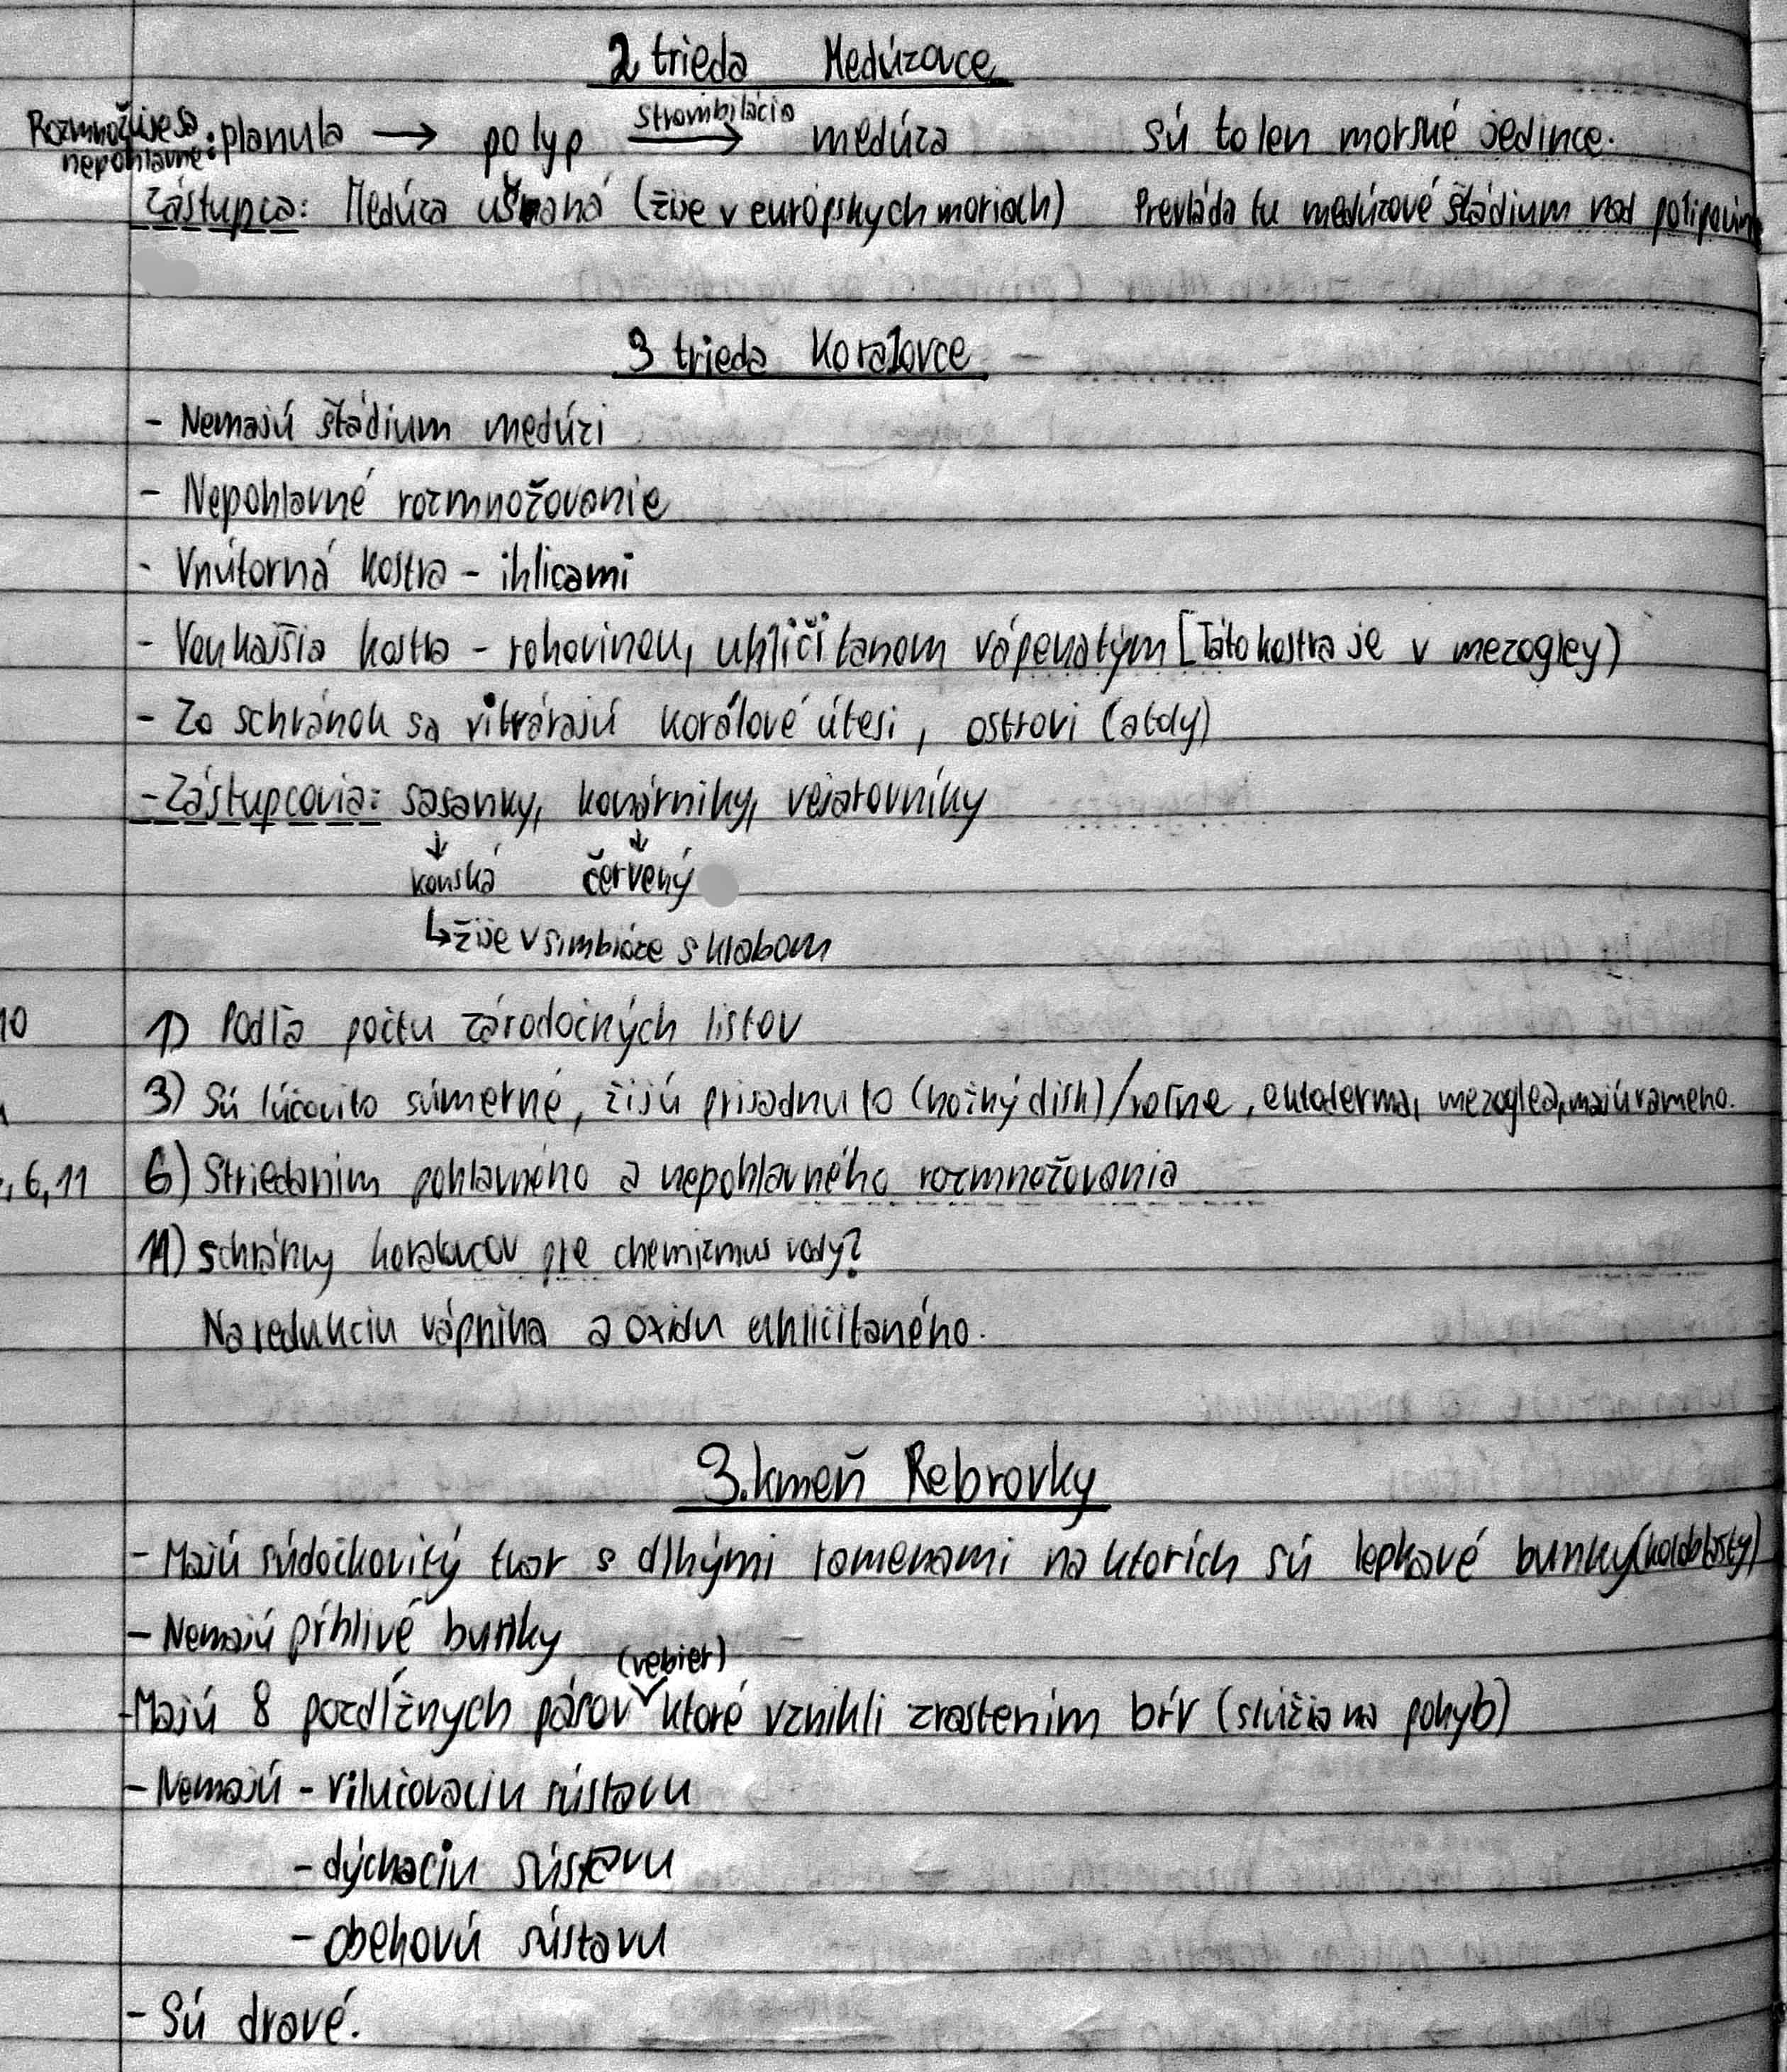 2 trieda Medúzovce
Rozmnožuje sa nepohlavne: planula → polyp Strombilácia → medúza Sú to len morské jedince.
Zástupca: Medúza ušnaná (žije v európskych moriach) Prevláda tu medúzové štádium nad
3 trieda Koralovce
- Nemajú štádium medúzi
- Nepohlavné rozmnožovanie
- Vnútorná kostra - ihlicami
- Vonkajšia kostra - rohovinou, uhličitanom vápenatým [Táto kostra je v mezogley)
- Zo schránok sa vitvárajú korálové útesi, ostrovi (atoly)
- Zástupcovia: sasanky, konárniky, vejarovníky
↓ ↓
konská červený
↳ žije v simbióze s krabom
10 1) Podľa počtu zárodočných listov
3) Sú lúčovito súmerné, žijú prisadnuto (nožný disk)/voľne, ektoderma, mezoglea, majú ramena.
, 6, 11 6) Striedaním pohlavného a nepohlavného rozmnožovania
11) schránky koralovcov pre chemizmus vody?
Na redukciu vápnika a oxidu uhličitaného.
3. kmeň Rebrovky
- Majú súdočkovitý tvar s dlhými ramenami na ktorích sú lepkavé bunky (koloblasty)
- Nemajú pŕhlivé bunky
- Majú 8 pozdĺžnych pásov (rebier) ktoré vznikli zrastením bŕv (slúžia na pohyb)
- Nemajú - vilučovaciu sústavu
- dýchaciu sústavu
- obehovú sústavu
- Sú dravé.